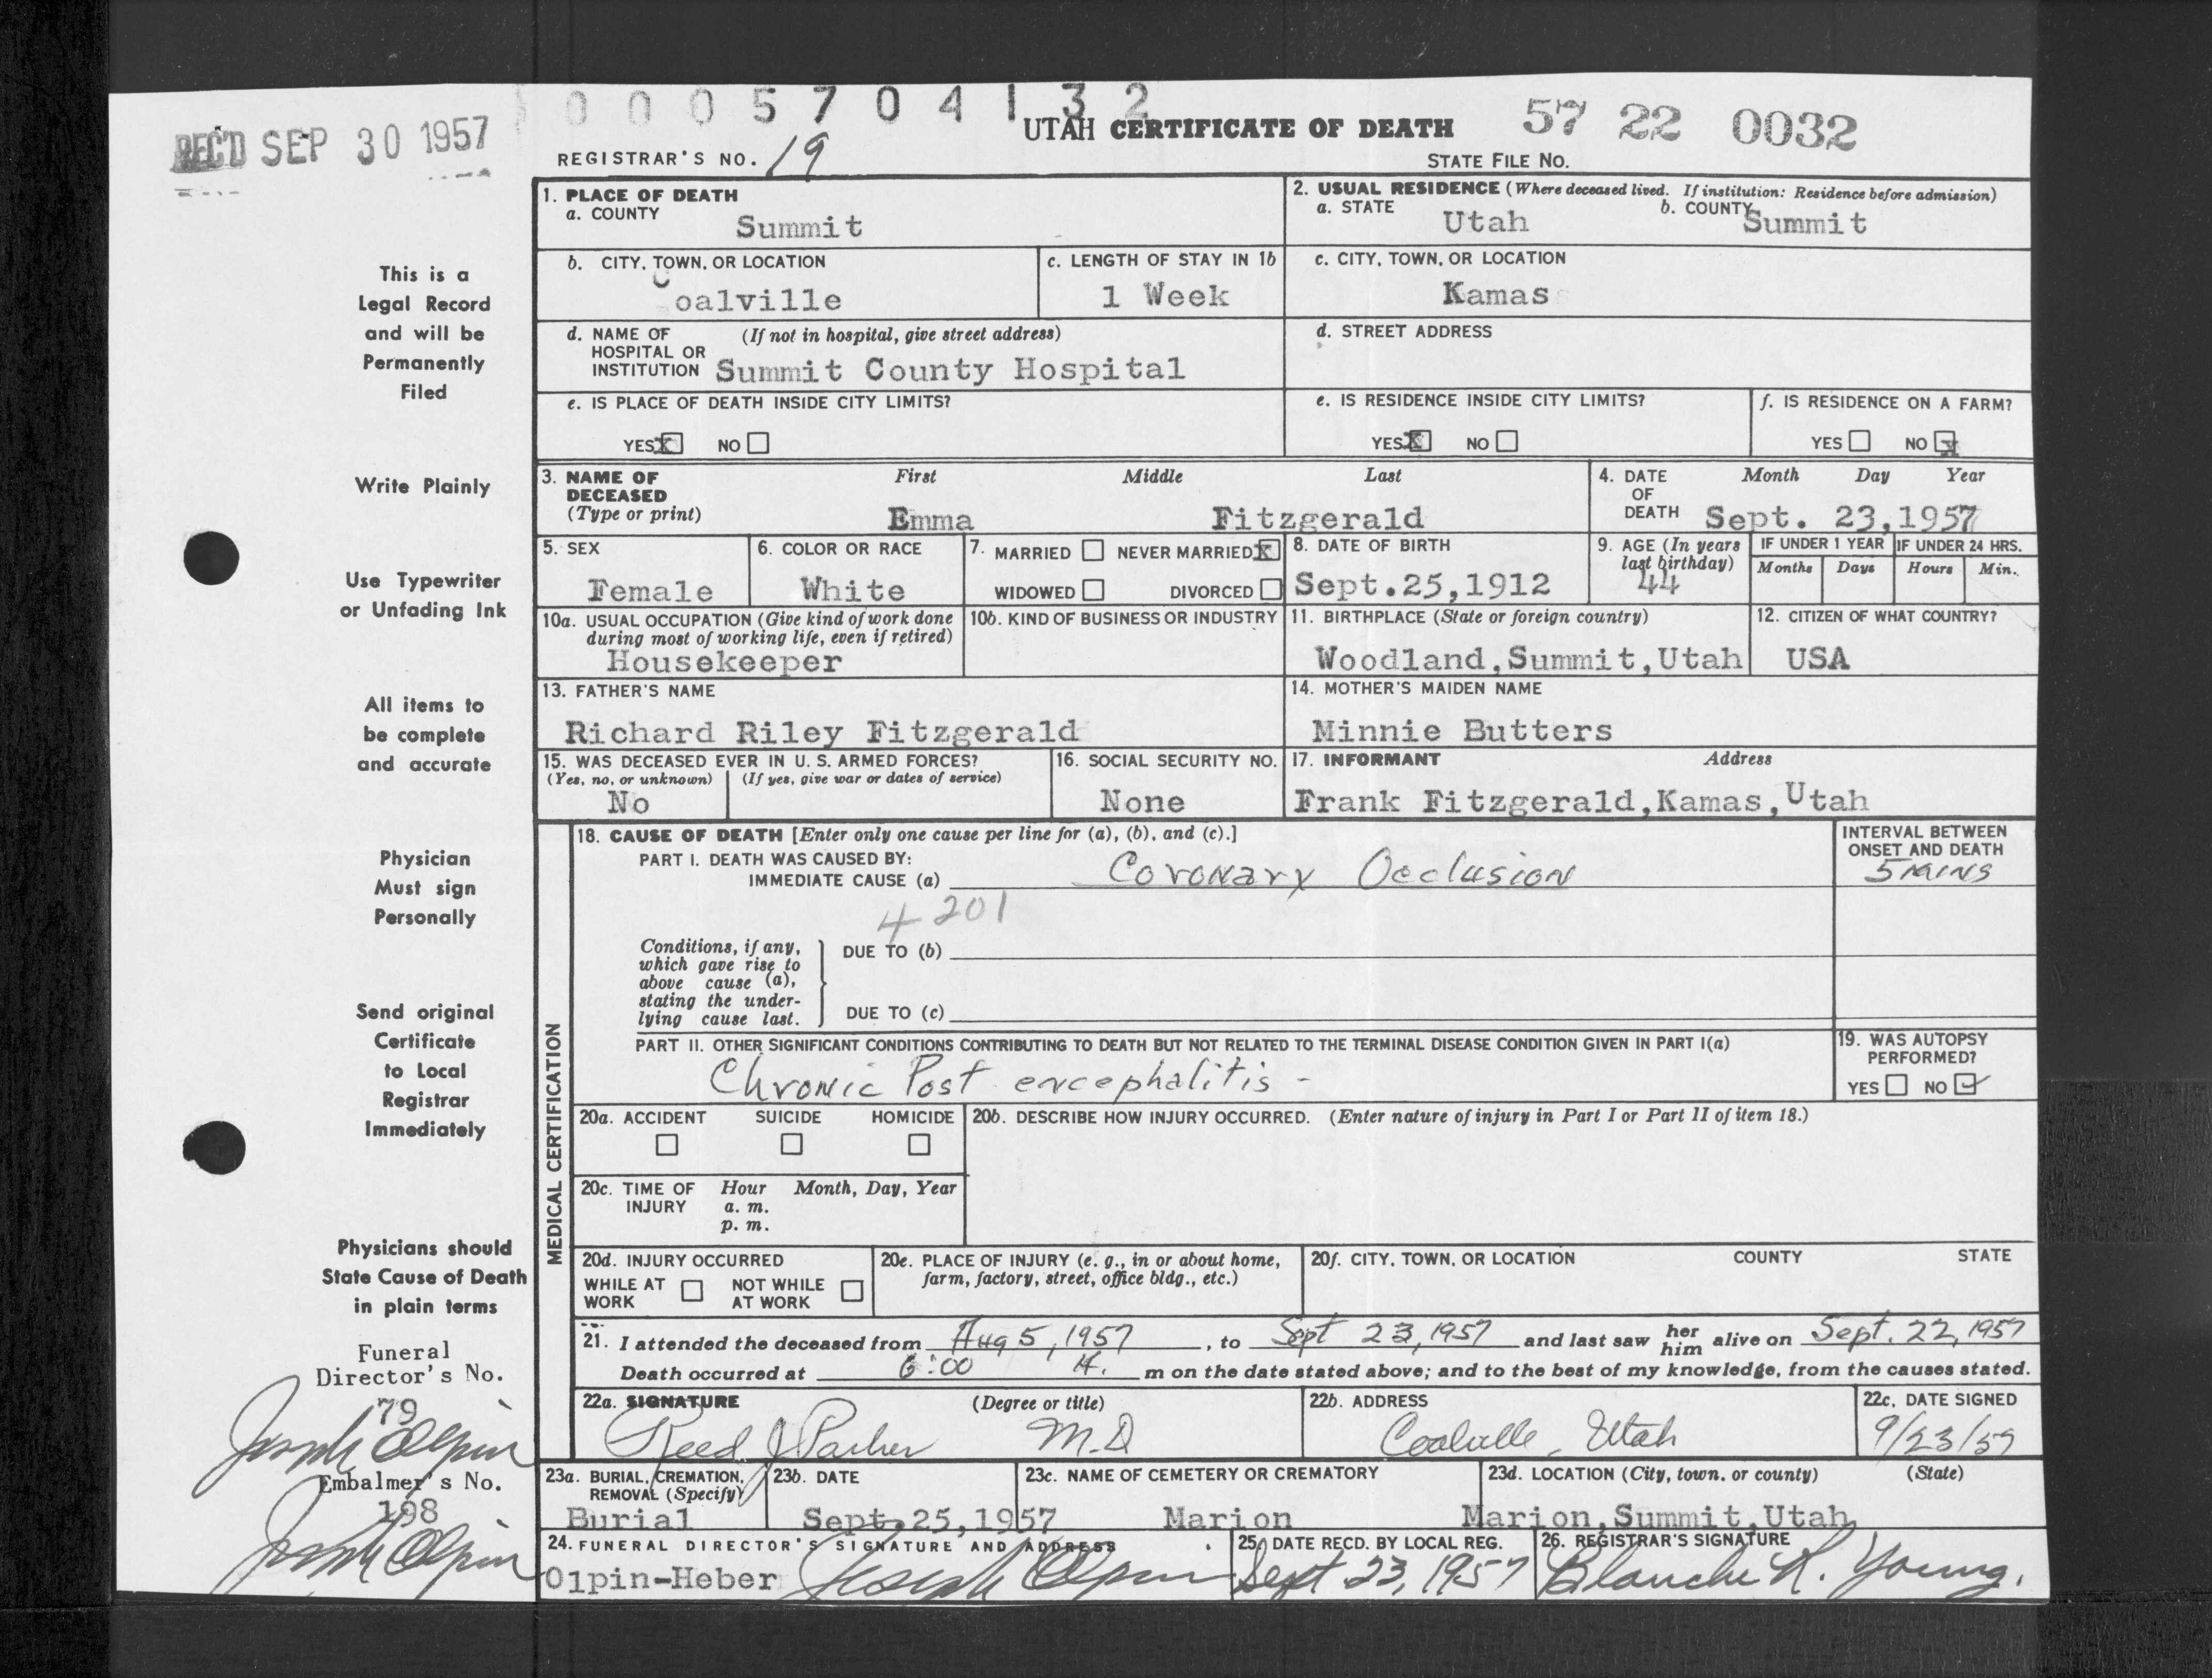 0005704132
REC'D SEP 30 1957
UTAH CERTIFICATE OF DEATH
57 22 0032
REGISTRAR'S NO. 19
STATE FILE NO.
This is a
Legal Record
and will be
Permanently
Filed
Write Plainly
Use Typewriter
or Unfading Ink
All items to
be complete
and accurate
Physician
Must sign
Personally
Send original
Certificate
to Local
Registrar
Immediately
Physicians should
State Cause of Death
in plain terms
Funeral
Director's No.
79
Joseph Olpin
Embalmer's No.
198
Joseph Olpin
1. PLACE OF DEATH
a. COUNTY
Summit
2. USUAL RESIDENCE (Where deceased lived. If institution: Residence before admission)
a. STATE
Utah
b. COUNTY
Summit
b. CITY, TOWN, OR LOCATION
Coalville
c. LENGTH OF STAY IN 1b
1 Week
c. CITY, TOWN, OR LOCATION
Kamas
d. NAME OF (If not in hospital, give street address)
HOSPITAL OR
INSTITUTION Summit County Hospital
d. STREET ADDRESS
e. IS PLACE OF DEATH INSIDE CITY LIMITS?
YES X NO
e. IS RESIDENCE INSIDE CITY LIMITS?
YES X NO
f. IS RESIDENCE ON A FARM?
YES NO X
3. NAME OF
DECEASED
(Type or print)
First Middle Last
Emma Fitzgerald
4. DATE
OF
DEATH
Month Day Year
Sept. 23,1957
5. SEX
Female
6. COLOR OR RACE
White
7. MARRIED NEVER MARRIED X
WIDOWED DIVORCED
8. DATE OF BIRTH
Sept.25,1912
9. AGE (In years
last birthday)
44
IF UNDER 1 YEAR
Months Days
IF UNDER 24 HRS.
Hours Min.
10a. USUAL OCCUPATION (Give kind of work done
during most of working life, even if retired)
Housekeeper
10b. KIND OF BUSINESS OR INDUSTRY
11. BIRTHPLACE (State or foreign country)
Woodland,Summit,Utah
12. CITIZEN OF WHAT COUNTRY?
USA
13. FATHER'S NAME
Richard Riley Fitzgerald
14. MOTHER'S MAIDEN NAME
Minnie Butters
15. WAS DECEASED EVER IN U. S. ARMED FORCES?
(Yes, no, or unknown) (If yes, give war or dates of service)
No
16. SOCIAL SECURITY NO.
None
17. INFORMANT Address
Frank Fitzgerald,Kamas,Utah
MEDICAL CERTIFICATION
18. CAUSE OF DEATH [Enter only one cause per line for (a), (b), and (c).]
PART I. DEATH WAS CAUSED BY:
IMMEDIATE CAUSE (a) Coronary Occlusion
INTERVAL BETWEEN
ONSET AND DEATH
5 mins
4201
Conditions, if any,
which gave rise to
above cause (a),
stating the under-
lying cause last.
DUE TO (b)
DUE TO (c)
PART II. OTHER SIGNIFICANT CONDITIONS CONTRIBUTING TO DEATH BUT NOT RELATED TO THE TERMINAL DISEASE CONDITION GIVEN IN PART I(a)
Chronic Post encephalitis -
19. WAS AUTOPSY
PERFORMED?
YES NO ✓
20a. ACCIDENT SUICIDE HOMICIDE
20b. DESCRIBE HOW INJURY OCCURRED. (Enter nature of injury in Part I or Part II of item 18.)
20c. TIME OF
INJURY
Hour Month, Day, Year
a. m.
p. m.
20d. INJURY OCCURRED
WHILE AT
WORK
NOT WHILE
AT WORK
20e. PLACE OF INJURY (e. g., in or about home,
farm, factory, street, office bldg., etc.)
20f. CITY, TOWN, OR LOCATION COUNTY STATE
21. I attended the deceased from Aug 5, 1957, to Sept 23, 1957 and last saw her him alive on Sept. 22, 1957
Death occurred at 6:00 m on the date stated above; and to the best of my knowledge, from the causes stated.
22a. SIGNATURE (Degree or title)
Reed J Parker M.D
22b. ADDRESS
Coalville, Utah
22c. DATE SIGNED
9/23/57
23a. BURIAL, CREMATION,
REMOVAL (Specify)
Burial
23b. DATE
Sept.25,1957
23c. NAME OF CEMETERY OR CREMATORY
Marion
23d. LOCATION (City, town, or county) (State)
Marion,Summit,Utah
24. FUNERAL DIRECTOR'S SIGNATURE AND ADDRESS
Olpin-Heber Joseph Olpin
25. DATE RECD. BY LOCAL REG.
Sept 23, 1957
26. REGISTRAR'S SIGNATURE
Blanche R. Young.